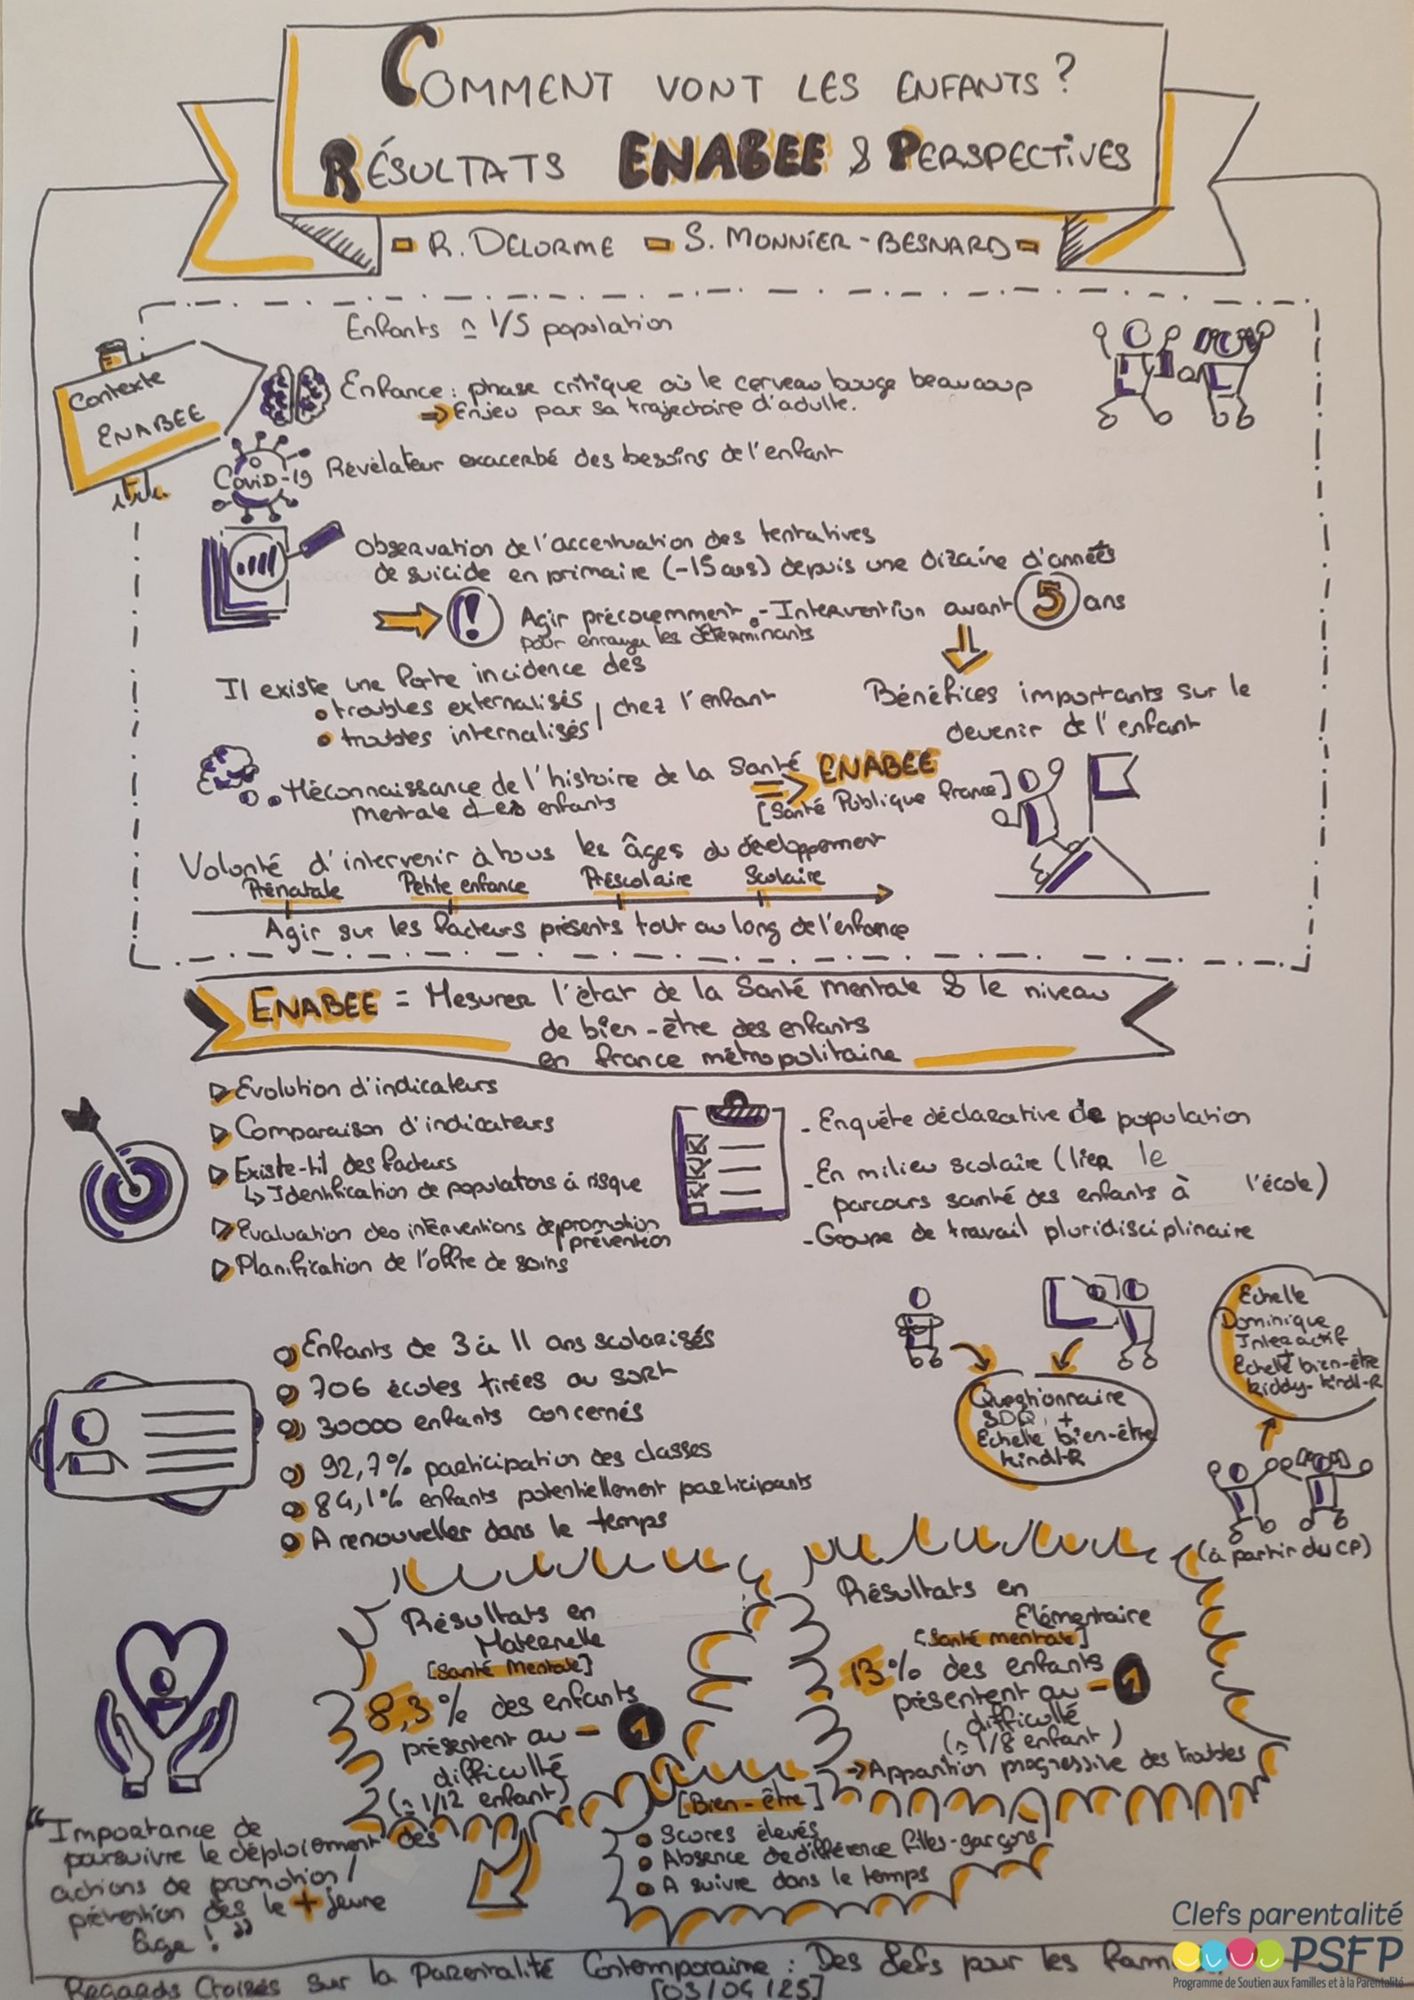 COMMENT VONT LES ENFANTS?
RÉSULTATS ENABEE & PERSPECTIVES
R. DELORME S. MONNIER-BESNARD
Enfants ≃ 1/5 population
Contexte
ENABEE
Enfance : phase critique où le cerveau bouge beaucoup
=> Enjeu par sa trajectoire d'adulte.
COVID-19 Révélateur exacerbé des besoins de l'enfant
Observation de l'accentuation des tentatives
de suicide en primaire (-15 ans) depuis une dizaine d'années
! Agir précocemment - Intervention avant 5 ans
pour enrayer les déterminants
Il existe une forte incidence des
troubles externalisés
troubles internalisés / chez l'enfant
Bénéfices importants sur le
devenir de l'enfant
Méconnaissance de l'histoire de la santé
mentale des enfants
=> ENABEE
[Santé Publique France]
Volonté d'intervenir à tous les âges du développement
Prénatale Petite enfance Préscolaire Scolaire
Agir sur les facteurs présents tout au long de l'enfance
ENABEE = Mesurer l'état de la santé mentale & le niveau
de bien-être des enfants
en france métropolitaine
Evolution d'indicateurs
Comparaison d'indicateurs
Existe-til des facteurs
↳ Identification de populations à risque
Evaluation des interventions de promotion
/ prévention
Planification de l'offre de soins
- Enquête déclarative de population
- En milieu scolaire (lier le
parcours santé des enfants à l'école)
- Groupe de travail pluridisciplinaire
Enfants de 3 à 11 ans scolarisés
706 écoles tirées au sort
30000 enfants concernés
92,7% participation des classes
84,1% enfants potentiellement participants
A renouveller dans le temps
Questionnaire
SDQ +
Echelle bien-être
kindl-R
Echelle
Dominique
Interactif
+
Echelle bien-être
kiddy-kindl-R
(à partir du CP)
Résultats en
Maternelle
[Santé Mentale]
8,3% des enfants
présentent au - 1
difficulté
(≃ 1/12 enfant)
Résultats en
Elémentaire
[Santé mentale]
13% des enfants
présentent au - 1
difficulté
(≃ 1/8 enfant)
-> Apparition progressive des troubles
[Bien-être]
Scores élevés
Absence de différence filles-garçons
A suivre dans le temps
"Importance de
poursuivre le déploiement des
actions de promotion /
prévention dès le + jeune
âge !"
Regards Croisés sur la Parentalité Contemporaine : Des clefs pour les
[03/04/25]
Clefs parentalité
PSFP
Programme de Soutien aux Familles et à la Parentalité